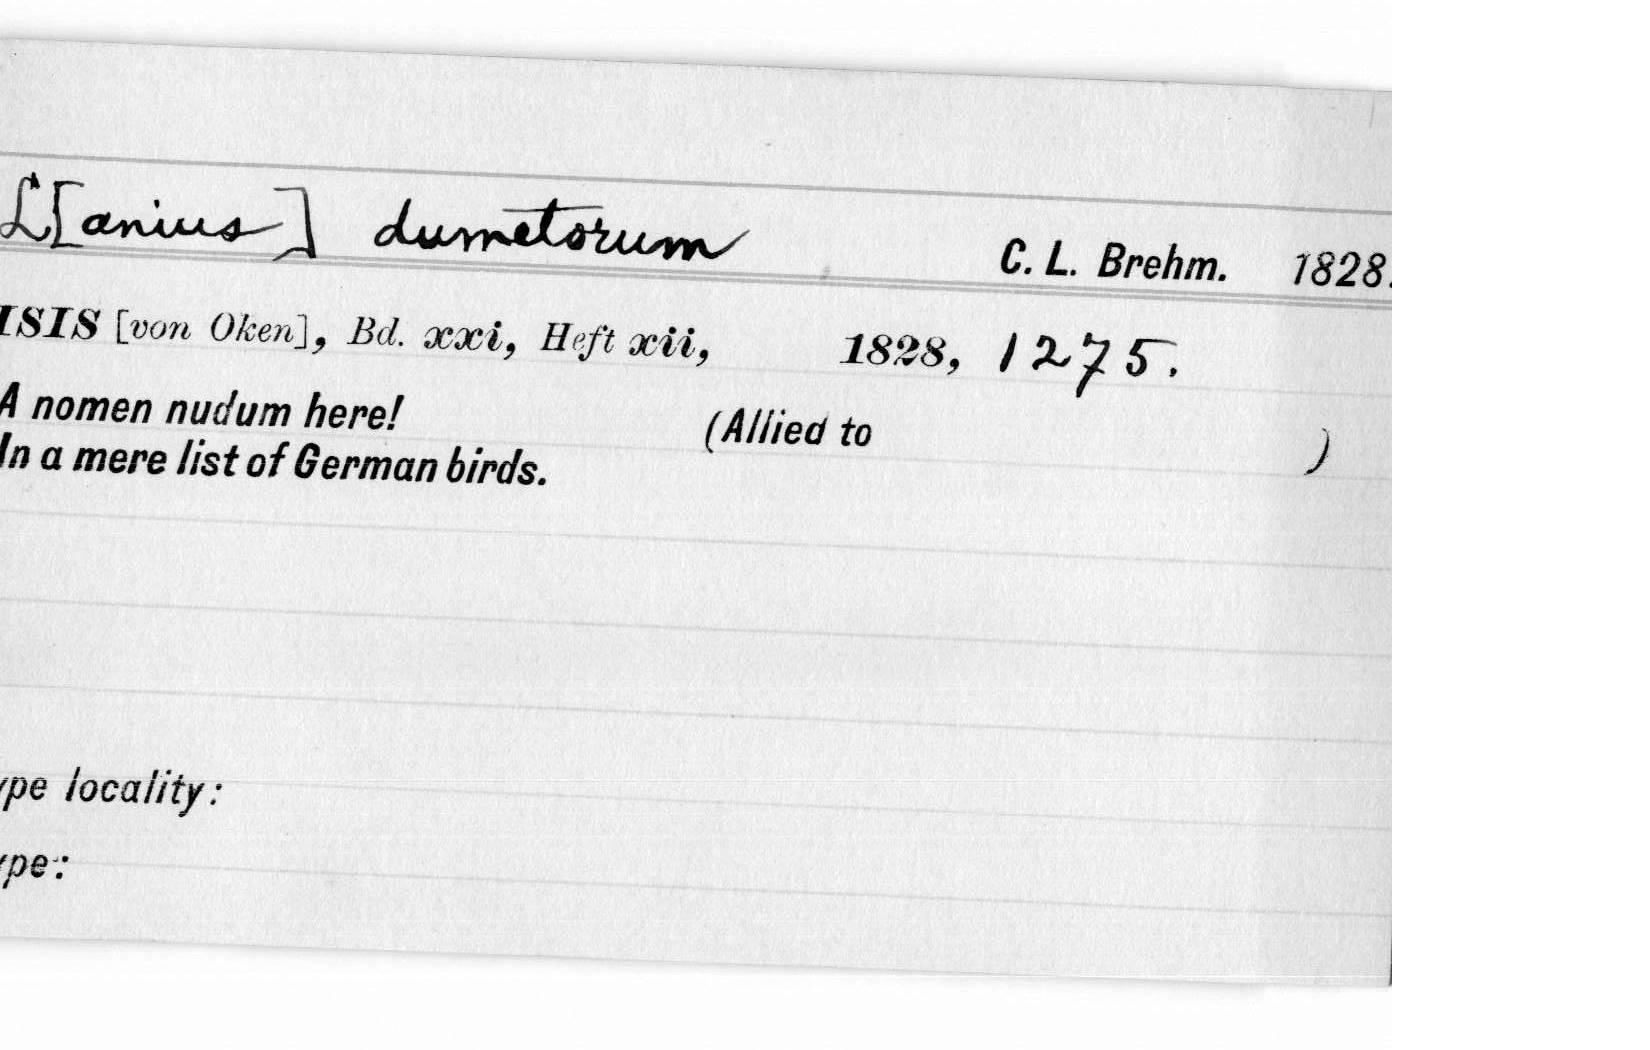 L[anius] dumetorum C. L. Brehm. 1828.
ISIS [von Oken], Bd. xxi, Heft xii, 1828, 1275.
A nomen nudum here! (Allied to )
In a mere list of German birds.
ype locality:
ype: